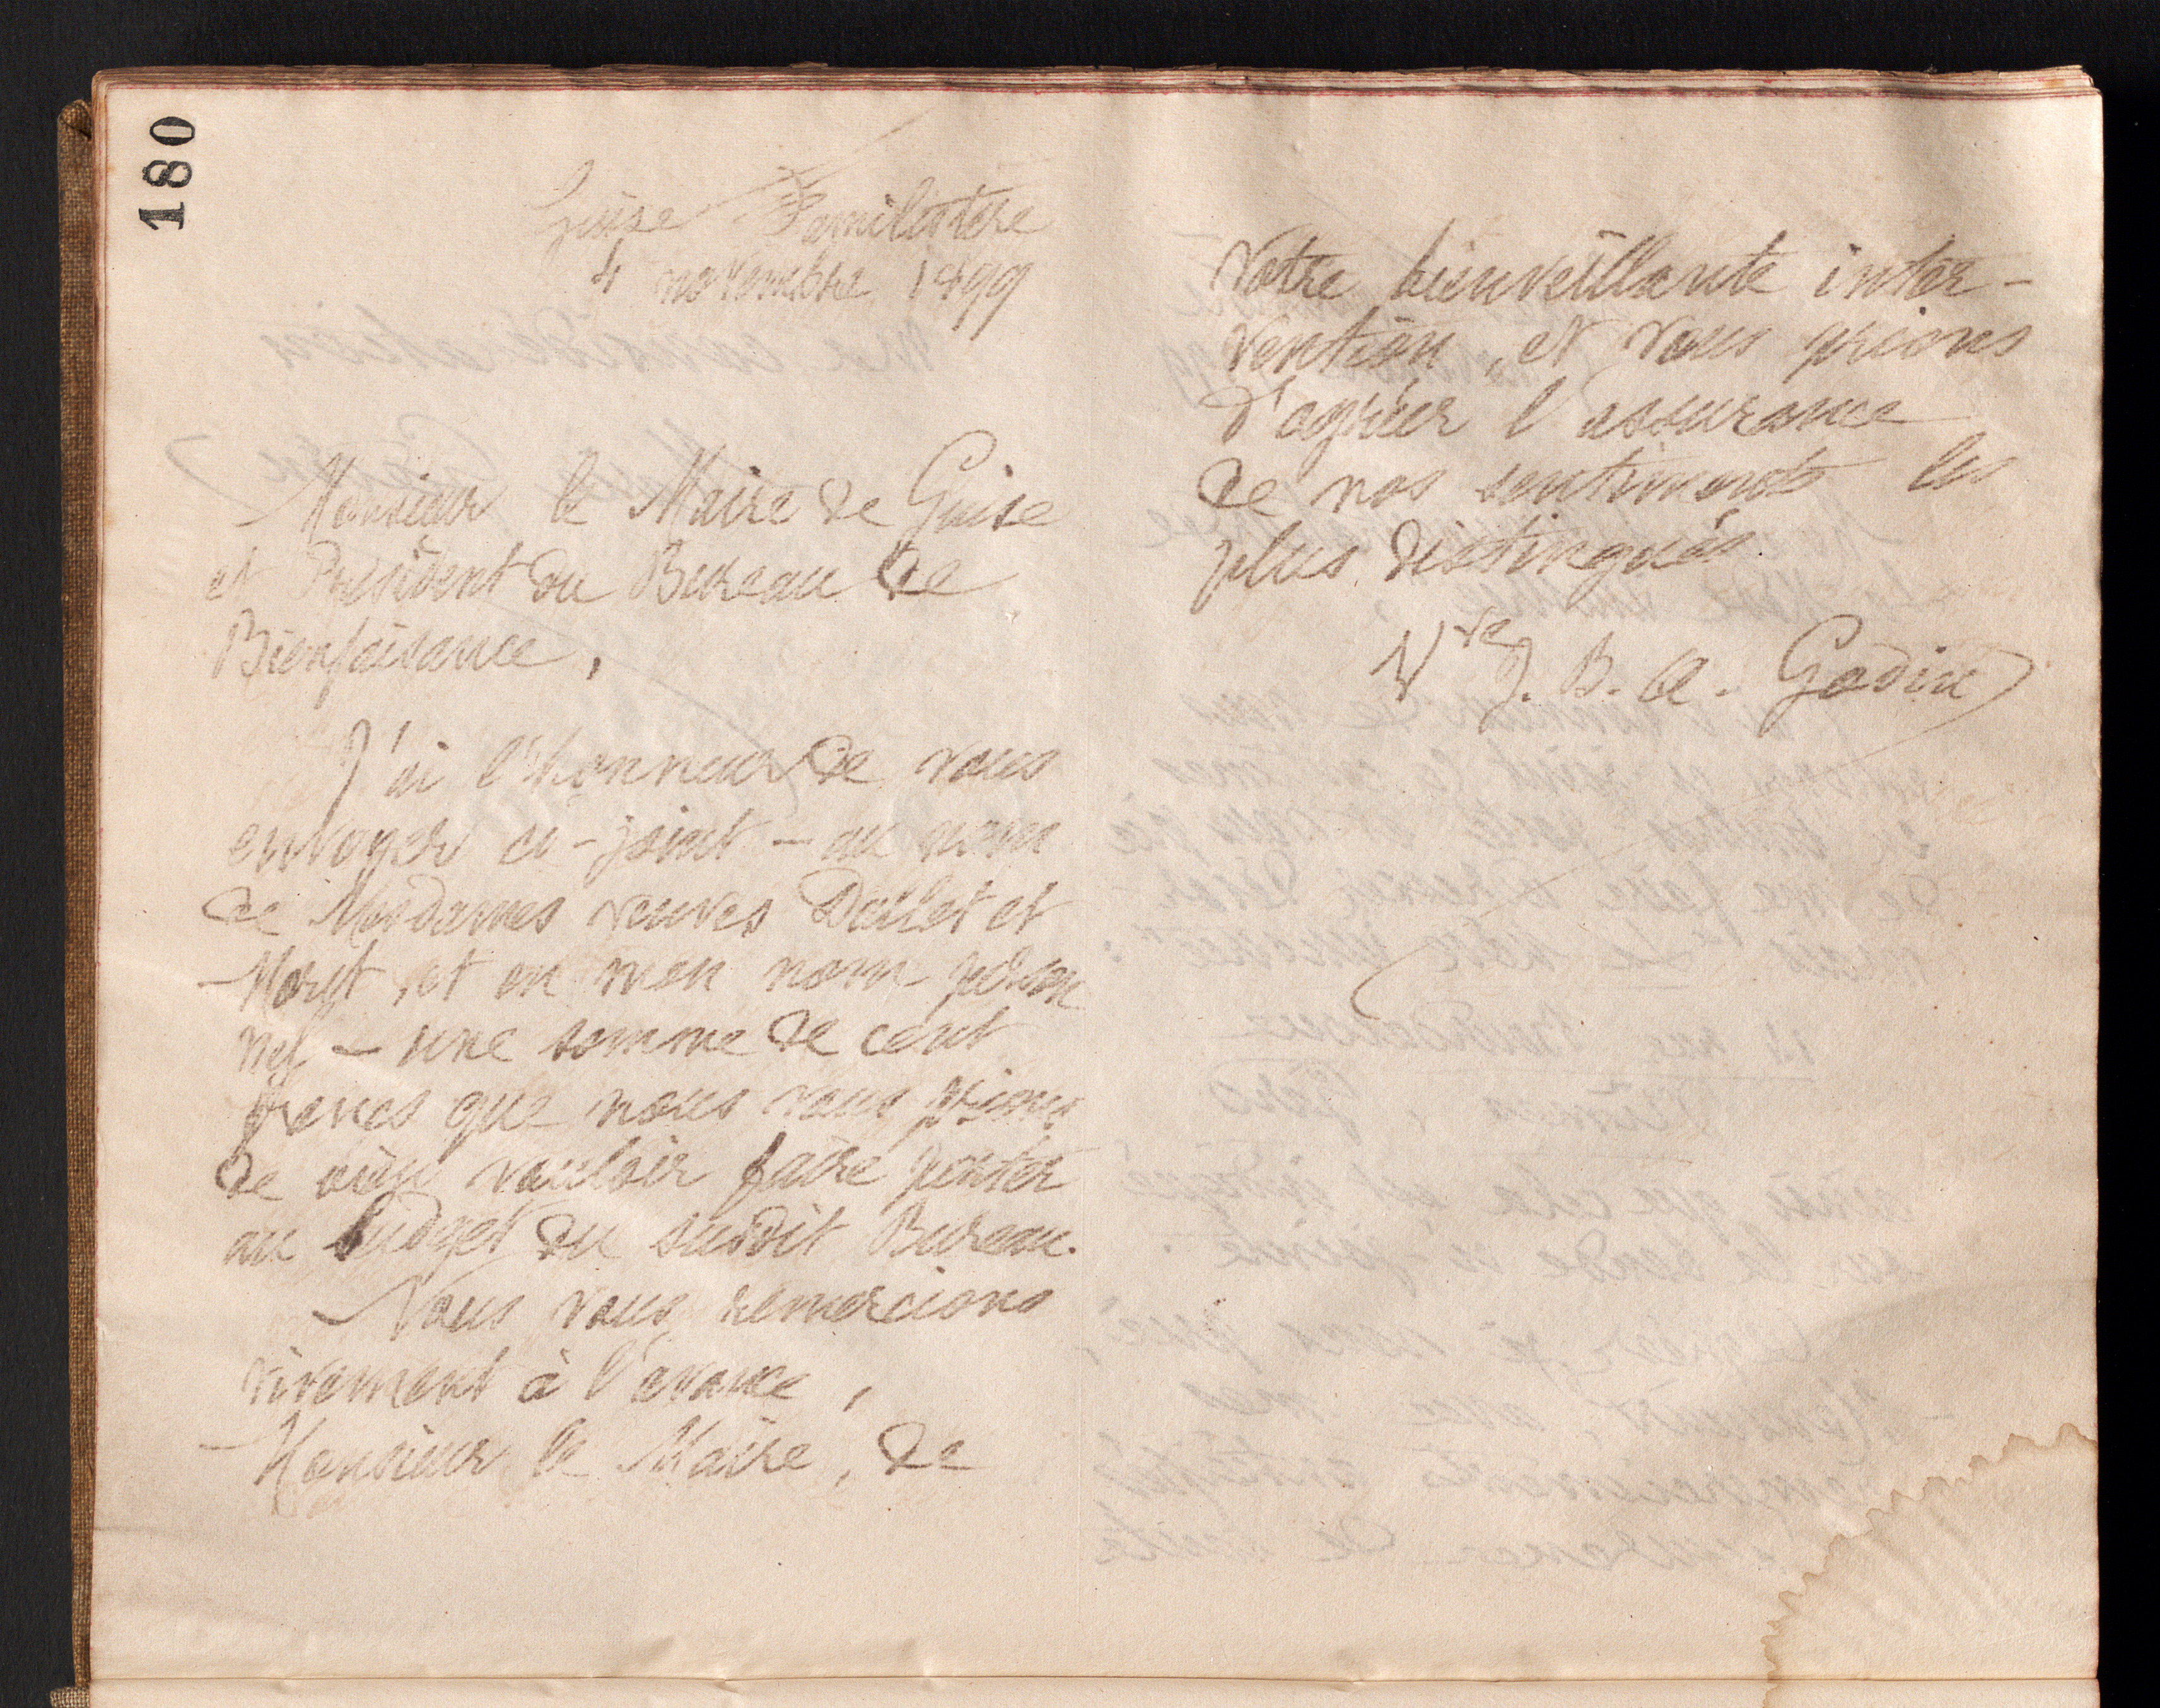 180
Guise Familistère
4 novembre 1899
Monsieur le Maire de Guise
et Président du Bureau de
Bienfaisance,
J'ai l'honneur de vous
envoyer ci-joint - au nom
de Mesdames veuves Dallet et
Moret, et en mon nom person
nel - une somme de cent
francs que nous vous prions
de bien vouloir faire porter
au budget du susdit Bureau.
Nous vous remercions
vivement à l'avance,
Monsieur le Maire, de
votre bienveillante inter-
vention, et vous prions
d'agréer l'assurance
de nos sentiments les
plus distingués.
Vve J. B. A. Godin